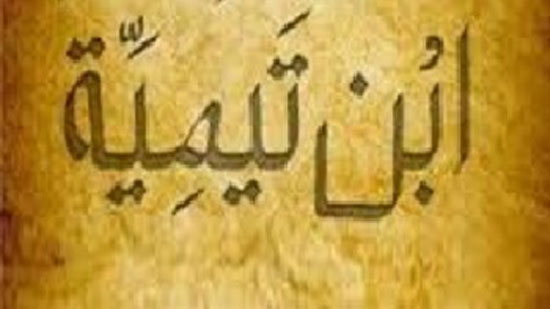 ابُن تَيمِيَّة